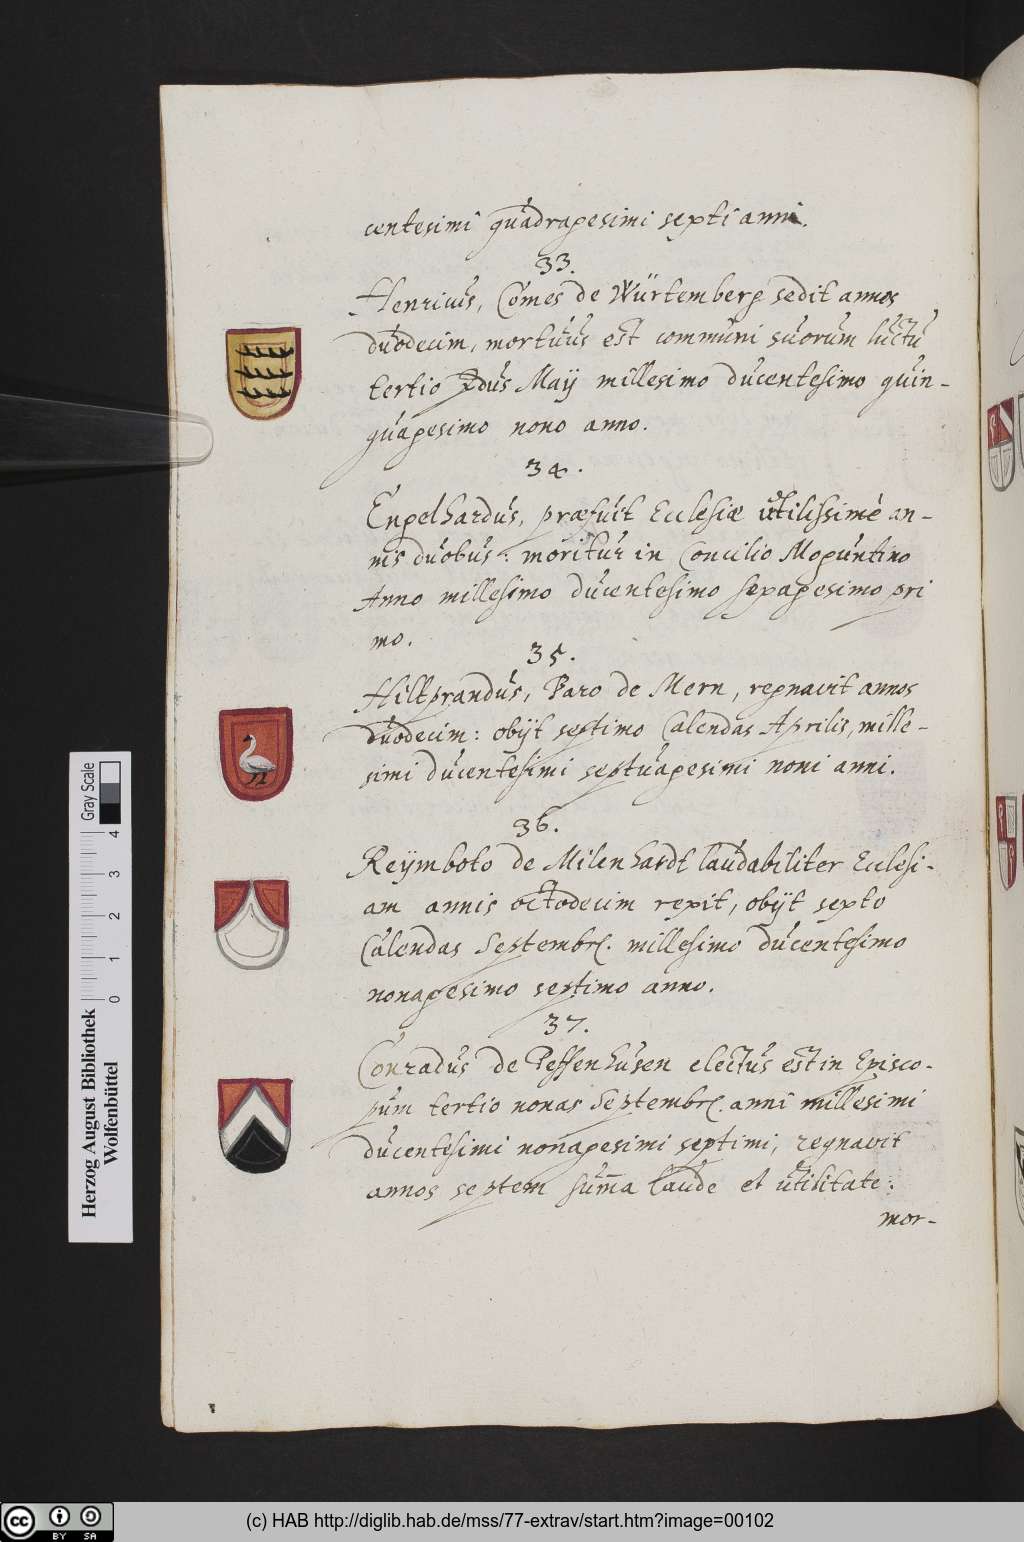 centesimi quadragesimi septi anni.
33.
Henricus, Comes de Würtemberg sedit annos
duodecim, mortuus est communi suorum luctu
tertio Idus Maÿ millesimo ducentesimo quin-
quagesimo nono anno.
34.
Engelhardus, præfuit Ecclesiæ utilissimè an-
nis duobus: moritur in Concilio Moguntino
Anno millesimo ducentesimo sexagesimo pri
mo.
35.
Hiltprandus, Baro de Mern, regnavit annos
duodecim: obÿt septimo Calendas Aprilis, mille-
simi ducentesimi septuagesimi noni anni.
36.
Reÿmboto de Milenhardt laudabiliter Ecclesi-
am annis octodecim rexit, obÿt sexto
Calendas Septembr. millesimo ducentesimo
nonagesimo septimo anno.
37.
Conradus de Peffenhusen electus est in Episco-
pum tertio nonas Septembr. anni millesimi
ducentesimi nonagesimi septimi, regnavit
annos septem sum̄a laude et utilitate:
mor-
Herzog August Bibliothek
Wolfenbüttel
0 1 2 3 4
Gray Scale
cc BY SA
(c) HAB http://diglib.hab.de/mss/77-extrav/start.htm?image=00102